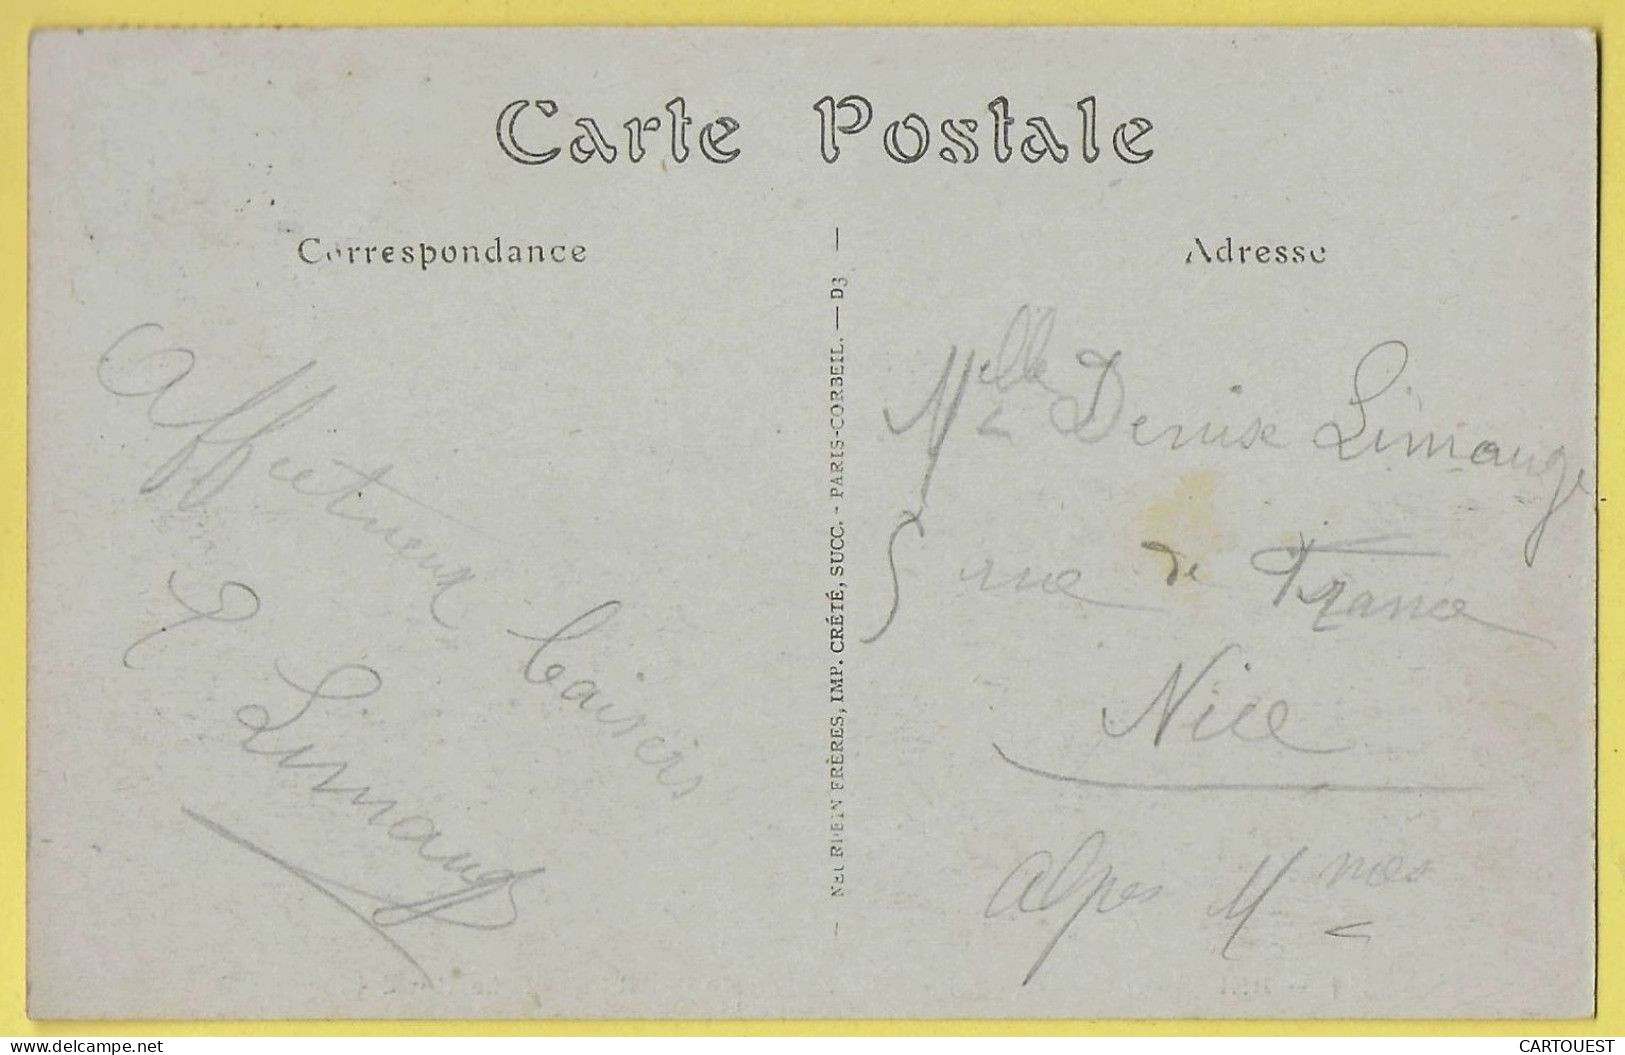 Carte Postale
Correspondance
Affectueux baisers
Limauge
NEURDEIN FRÈRES, IMP. CRÉTÉ, SUCC. - PARIS-CORBEIL. — D3
Adresse
Melle Denise Limauge
5 rue de France
Nice
Alpes Mmes
www.delcampe.net
CARTOUEST